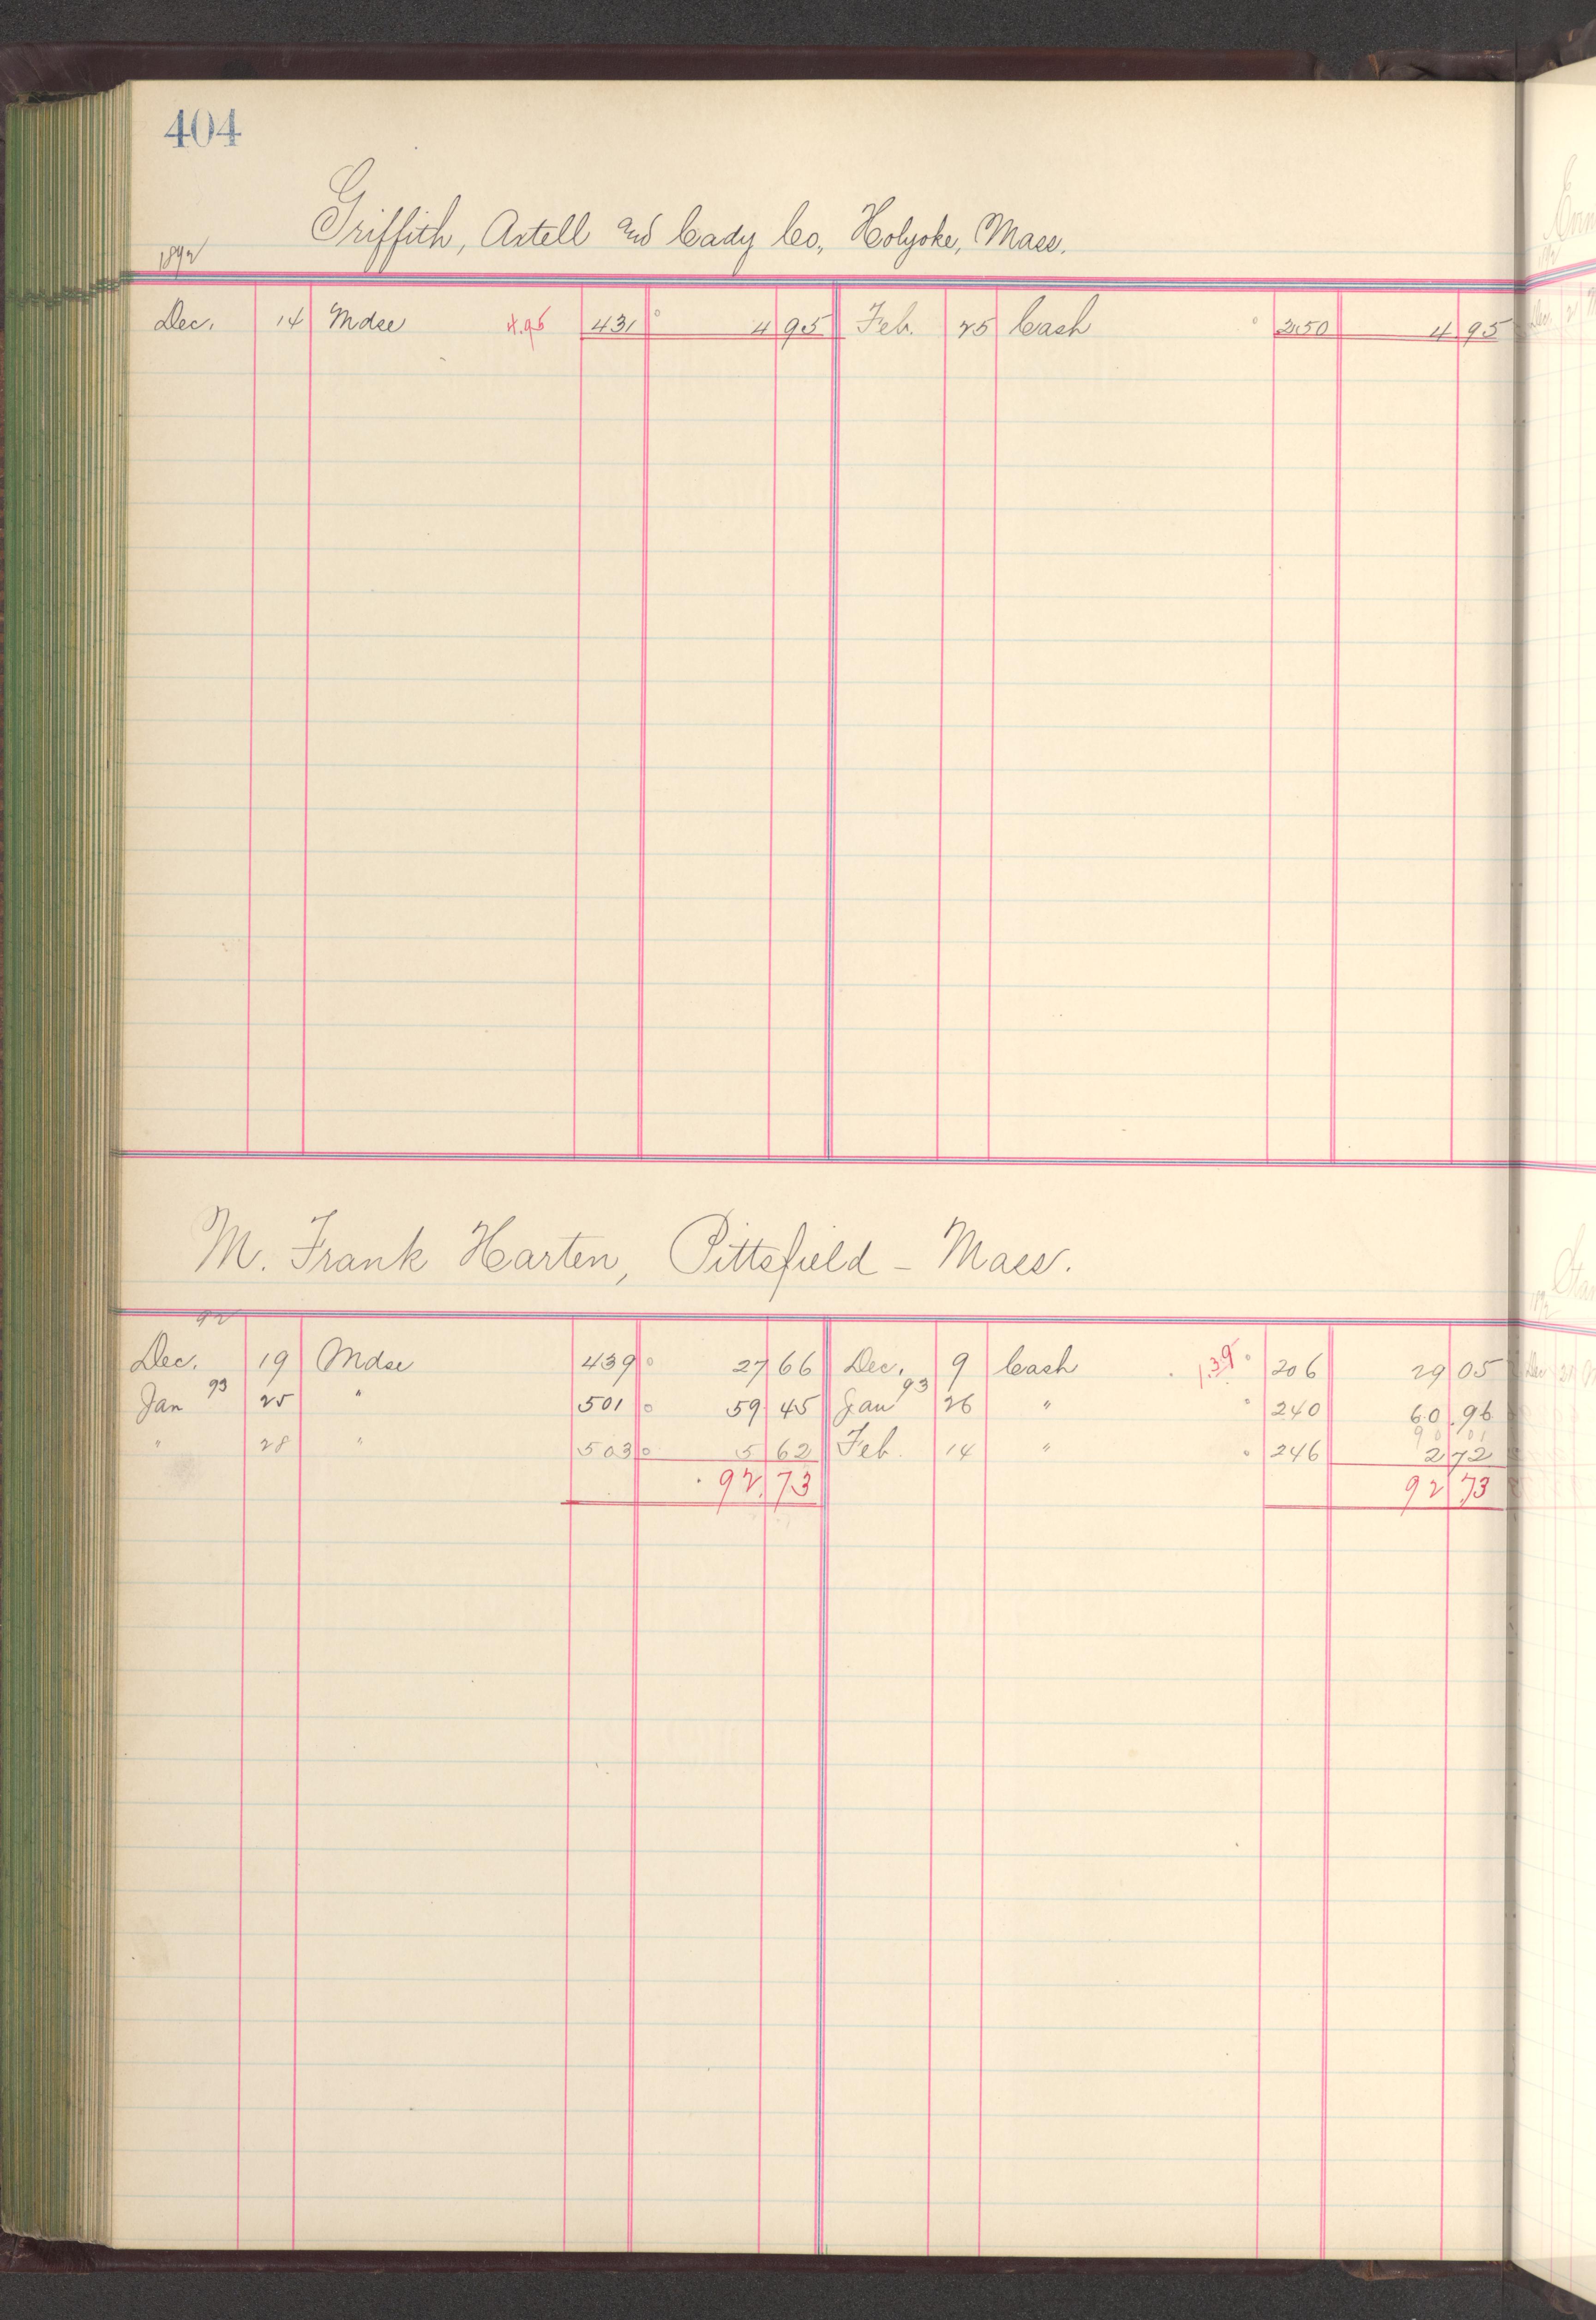 404
Griffith, Axtell and Cady Co., Holyoke, Mass.
1892
Dec. 14 Mdse 4.95 431 4 95 Feb. 25 Cash 250 4 95
M. Frank Harten, Pittsfield - Mass.
92
Dec. 19 Mdse 439 27 66 Dec. 9 Cash 1.39 206 29 05
Jan 93 25 " 501 59 45 Jan 93 26 " 240 60.96
90 01
" 28 " 503 5 62 Feb. 14 " 246 2 72
92 73 92 73